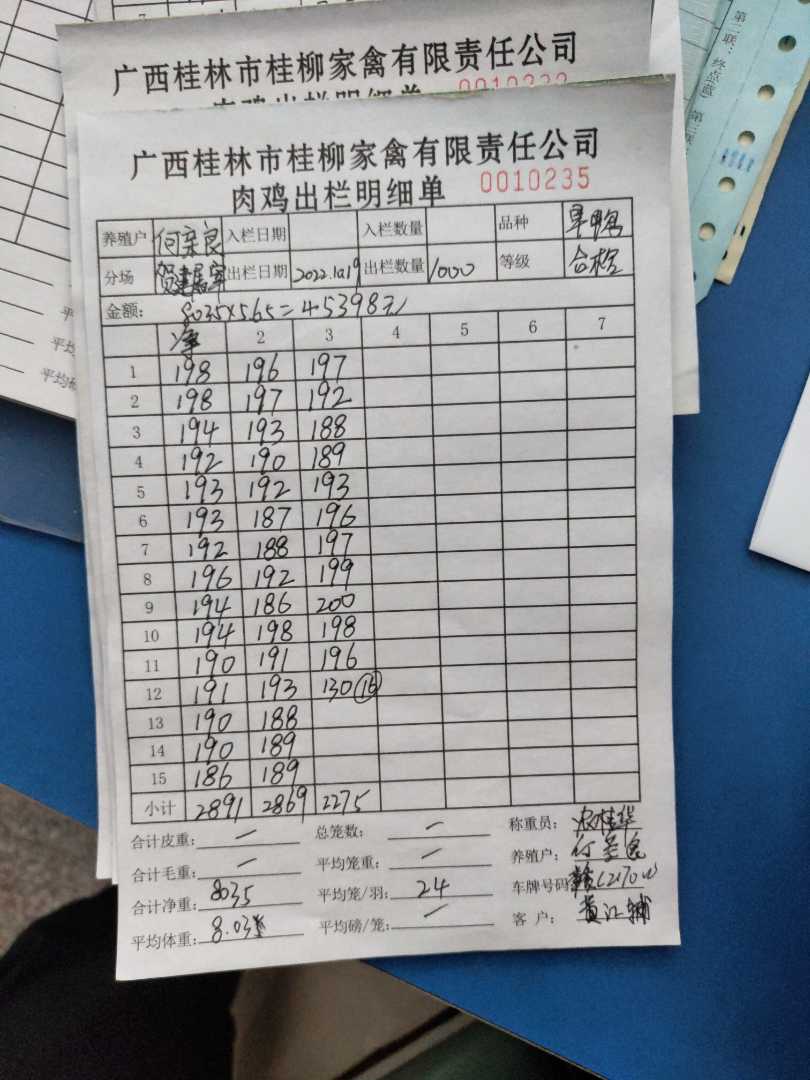 广西桂林市桂柳家禽有限责任公司
肉鸡出栏明细单
第二联：终点蓝）
第三联：
广西桂林市桂柳家禽有限责任公司
肉鸡出栏明细单 0010235
养殖户 入栏日期 入栏数量 品种
分场 出栏日期 2022.10.19 出栏数量 1000 等级 合格
金额： 8035×5.65=45398元
净 2 3 4 5 6 7
1 198 196 197
2 198 197 192
3 194 193 188
4 192 190 189
5 193 192 193
6 193 187 196
7 192 188 197
8 196 192 199
9 194 186 200
10 194 198 198
11 190 191 196
12 191 193 130 (16)
13 190 188
14 190 189
15 186 189
小计 2891 2869 2275
合计皮重： — 总笼数： — 称重员：
合计毛重： — 平均笼重： — 养殖户：
合计净重： 8035 平均笼/羽： 24 车牌号码
平均体重： 平均磅/笼： — 客户：
平均
平均
平均磅